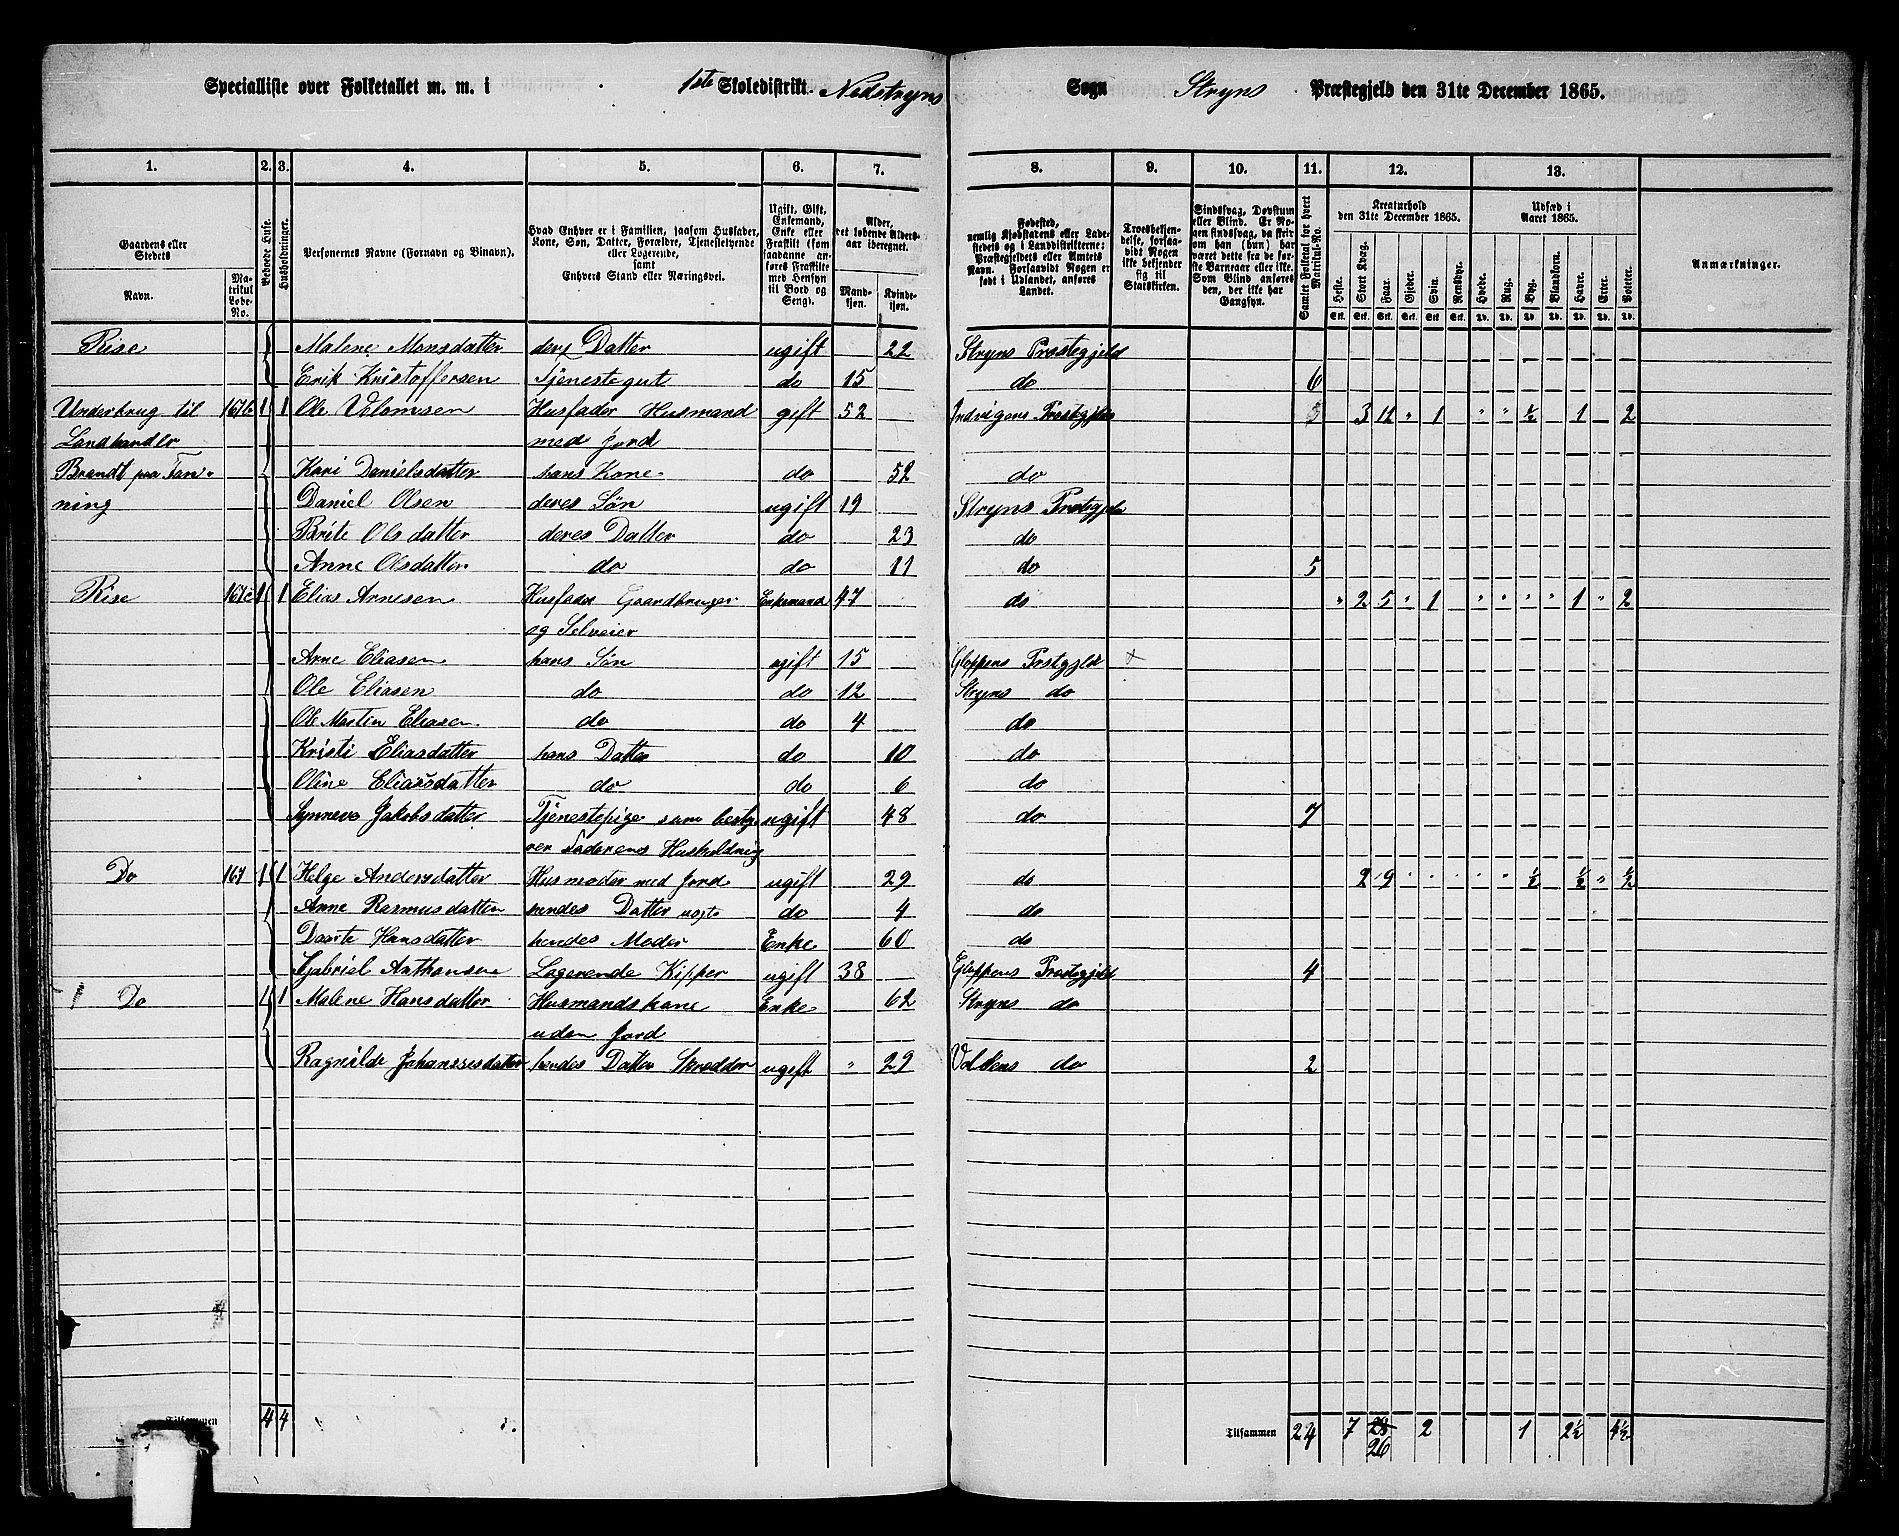 Specialliste over Folketallet m. m. i 1ste Skoledistrikt. Nedstryns Sogn Stryns Præstegjeld den 31te December 1865.
1. 2. 3. 4. 5. 6. 7. 8. 9. 10. 11. 12. 13.
Gaardens eller Stedets
Navn.
Matrikul Løbe-No.
Beboede Huse.
Husholdninger.
Personernes Navne (Fornavn og Binavn).
Hvad Enhver er i Familien, saasom Husfader, Kone, Søn, Datter, Forældre, Tjenestetyende eller Logerende, samt Enhvers Stand eller Næringsvei.
Ugift, Gift, Enkemand, Enke eller Fraskilt (som saadanne anføres Fraskilte med Hensyn til Bord og Seng).
Alder, det løbende Alders-aar iberegnet.
Mandkjøn. Kvindekjøn.
Fødested, nemlig Kjøbstadens eller Ladestedets og i Landdistrikterne: Præstegjeldets eller Amtets Navn. Forsaavidt Nogen er født i Udlandet, anføres Landet.
Troesbekjendelse, forsaavidt Nogen ikke bekjender sig til Statskirken.
Sindssvag, Døvstum eller Blind. Er Nogen sindssvag, da skrives om han (hun) har været dette fra de første Barneaar eller ikke. Som Blind anføres den, der ikke har Gangsyn.
Samlet Folketal for hvert Matrikul-No.
Kreaturhold den 31te December 1865.
Heste. Stort Kvæg. Faar. Gjeder. Svin. Rensdyr.
Udsæd i Aaret 1865.
Hvede. Rug. Byg. Blandkorn. Havre. Erter. Poteter.
Anmærkninger.
Rise Malene Monsdatter ders Datter ugift 22 Stryns Præstegjeld
Erik Kristoffersen Tjenestegut do 15 do 6
Underbrug til 167b 1 1 Ole Husfader Husmand gift 52 Indvigens Præstegjeld 5 3 12 " 1 " " ½ 1 2
Landhandler med Jord
Brandt paa Tan- Kari Danielsdatter hans Kone do 52 do
ning Daniel Olsen deres Søn ugift 19 Stryns Præstegjeld
Brite Olsdatter deres Datter do 23 do
Anne Olsdatter do do 11 do 5
Rise 167c 1 1 Elias Arnesen Husfader Gaardbruger Enkemand 47 do " 2 5 " 1 " " " " 1 " 2
og Selveier
Arne Eliasen hans Søn ugift 15 Gloppens Præstegjeld
Ole Eliasen do do 12 Stryns do
Ole Martin Eliasen do do 4 do
Kristi Eliasdatter hans Datter do 10 do
Oline Eliasdatter do do 6 do
Synneve Jakobsdatter Tjenestepige som besty- ugift 48 do 7
rer Faderens Husholdning
Do 167 1 1 Helge Andersdatter Husmoder med Jord ugift 29 do 2 9 ½ ½ " ½
Anne Rasmusdatter hendes Datter uægte do 4 do
Daarte Hansdatter hendes Moder Enke 60 do
Gjabriel Anthonsen Logerende Kipper ugift 38 Gloppens Præstegjeld 4
Do 1 1 Malene Hansdatter Husmandskone Enke 62 Stryns do
uden Jord
Ragnilde Johannesdatter hendes Datter Skrædder ugift " 29 do 2
Tilsammen 4 4
Tilsammen 24 7 28 2 1 2½ 4½
26